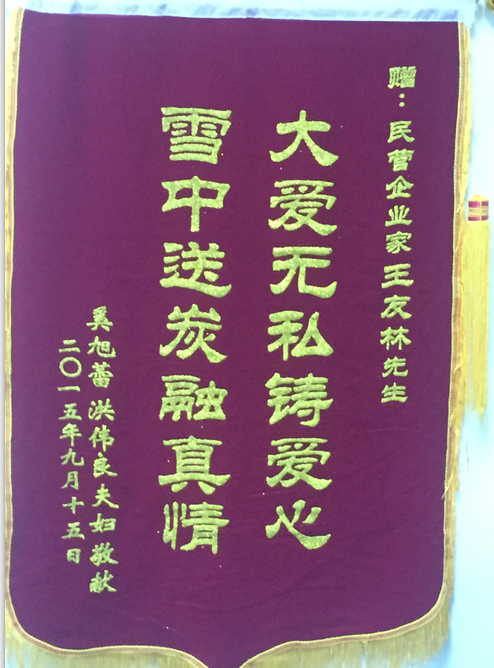 赠：民营企业家王友林先生
大爱无私铸爱心
雪中送炭融真情
奚旭蕾 洪伟良夫妇敬献
二〇一五年九月十五日